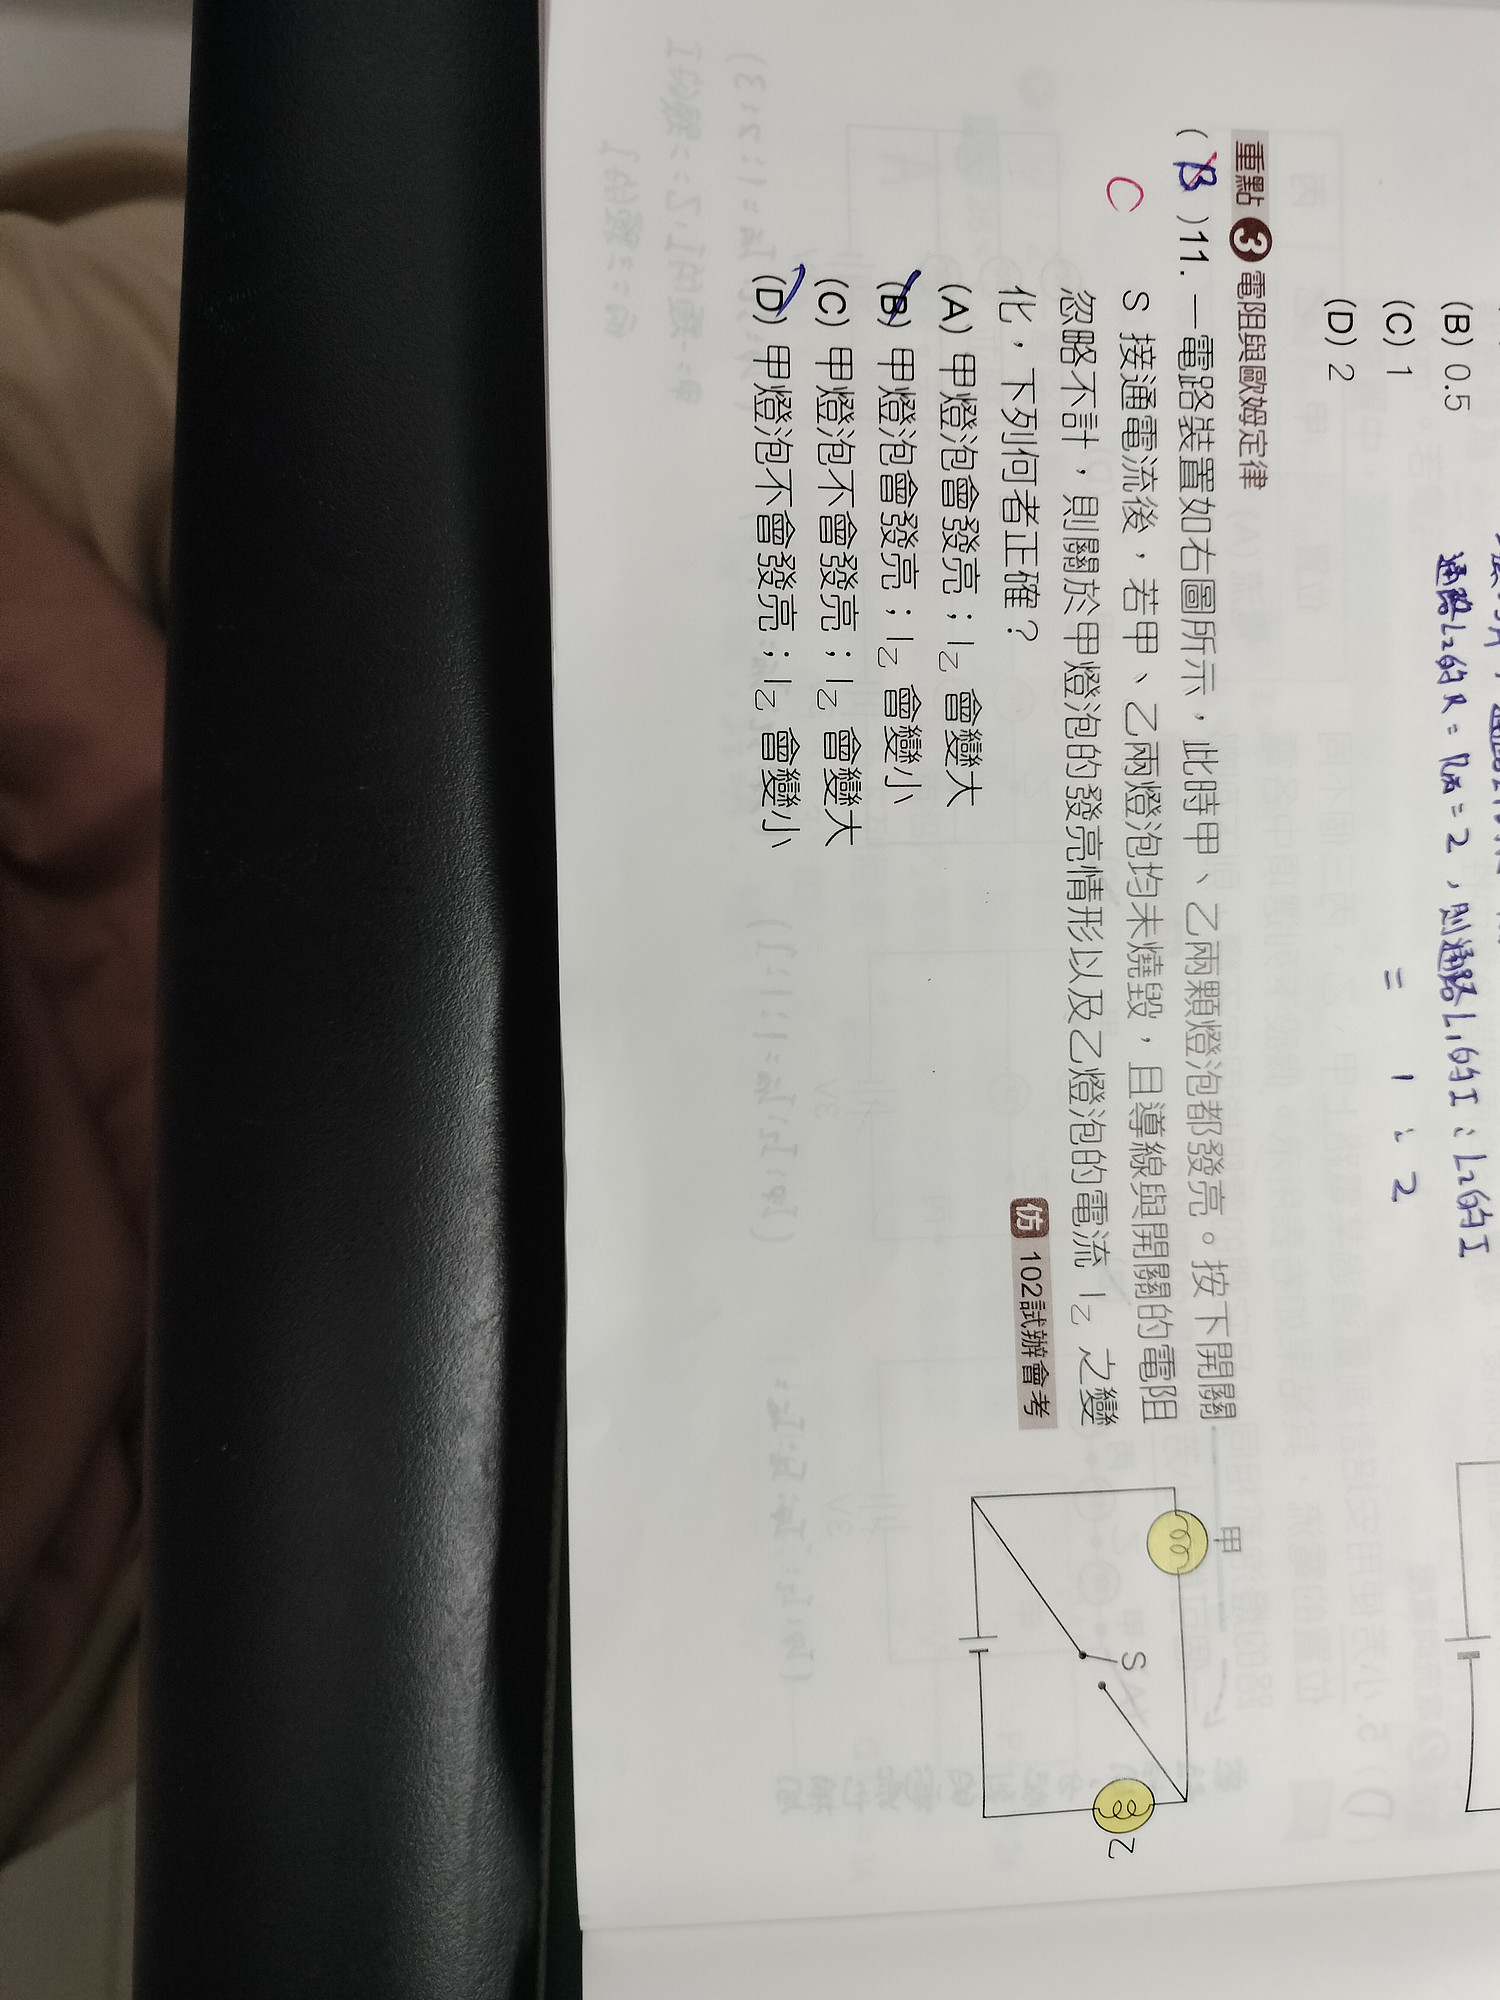 通路L2的R=R丙=2,則通路L1的I:L2的I
= 1:2
(B) 0.5
(C) 1
(D) 2
重點 3 電阻與歐姆定律
( B )11. 一電路裝置如右圖所示,此時甲、乙兩顆燈泡都發亮。按下開關
C
S 接通電流後,若甲、乙兩燈泡均未燒毀,且導線與開關的電阻
忽略不計,則關於甲燈泡的發亮情形以及乙燈泡的電流 I乙 之變
化,下列何者正確?
仿 102試辦會考
(A) 甲燈泡會發亮;I乙 會變大
(B) 甲燈泡會發亮;I乙 會變小
(C) 甲燈泡不會發亮;I乙 會變大
(D) 甲燈泡不會發亮;I乙 會變小
甲
S
乙